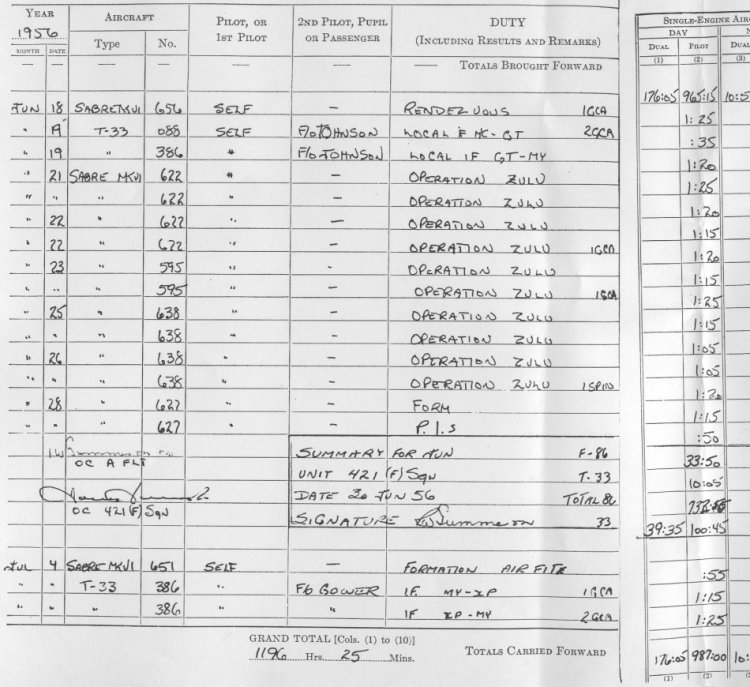 YEAR AIRCRAFT PILOT, OR 2ND PILOT, PUPIL DUTY SINGLE-ENGINE AIRC
1956 Type No. 1ST PILOT OR PASSENGER (INCLUDING RESULTS AND REMARKS) DAY N
MONTH DATE DUAL PILOT DUAL
— — — — — — — TOTALS BROUGHT FORWARD (1) (2) (3)
JUN 18 SABRE MKVI 656 SELF — RENDEZVOUS 1GCA 176:05 965:15 10:5
" 19 T-33 088 SELF F/O JOHNSON LOCAL IF MC-GT 2GCA 1:25
" 19 " 386 " F/O JOHNSON LOCAL IF GT-MY :35
" 21 SABRE MKVI 622 " — OPERATION ZULU 1:20
" " " 622 " — OPERATION ZULU 1:25
" 22 " 627 " — OPERATION ZULU 1:20
" 22 " 622 " — OPERATION ZULU 1GCA 1:15
" 23 " 595 " — OPERATION ZULU 1:20
" " " 595 " — OPERATION ZULU 1GCA 1:15
" 25 " 638 " — OPERATION ZULU 1:25
" " " 638 " — OPERATION ZULU 1:15
" 26 " 638 " — OPERATION ZULU 1:05
" " " 638 " — OPERATION ZULU 1SPIN 1:05
" 28 " 627 " — FORM 1:20
" " " 627 " — P.I.S 1:15
:50
SUMMARY FOR JUN F-86 33:50
OC A FLT
UNIT 421 (F) SQN T-33 10:05
DATE 30 JUN 56 TOTAL 86
OC 421 (F) SQN
SIGNATURE 33 39:35 100:45
JUL 4 SABRE MKVI 651 SELF — FORMATION AIR FITE :55
" " T-33 386 " F/O GOWER IF MY-XP 1GCA 1:15
" " " 386 " " IF XP-MY 2GCA 1:25
GRAND TOTAL [Cols. (1) to (10)]
1196 Hrs. 25 Mins. TOTALS CARRIED FORWARD 176:05 987:00 10:
(1) (2)